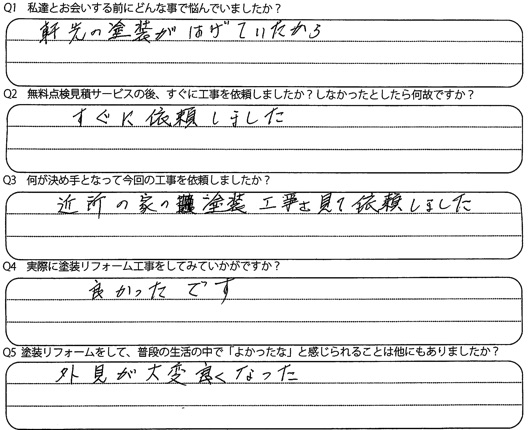 Q1 私達とお会いする前にどんな事で悩んでいましたか？
軒先の塗装がはげていたから
Q2 無料点検見積サービスの後、すぐに工事を依頼しましたか？しなかったとしたら何故ですか？
すぐに依頼しました
Q3 何が決め手となって今回の工事を依頼しましたか？
近所の家の塗装工事を見て依頼しました
Q4 実際に塗装リフォーム工事をしてみていかがですか？
良かったです
Q5 塗装リフォームをして、普段の生活の中で「よかったな」と感じられることは他にもありましたか？
外見が大変良くなった